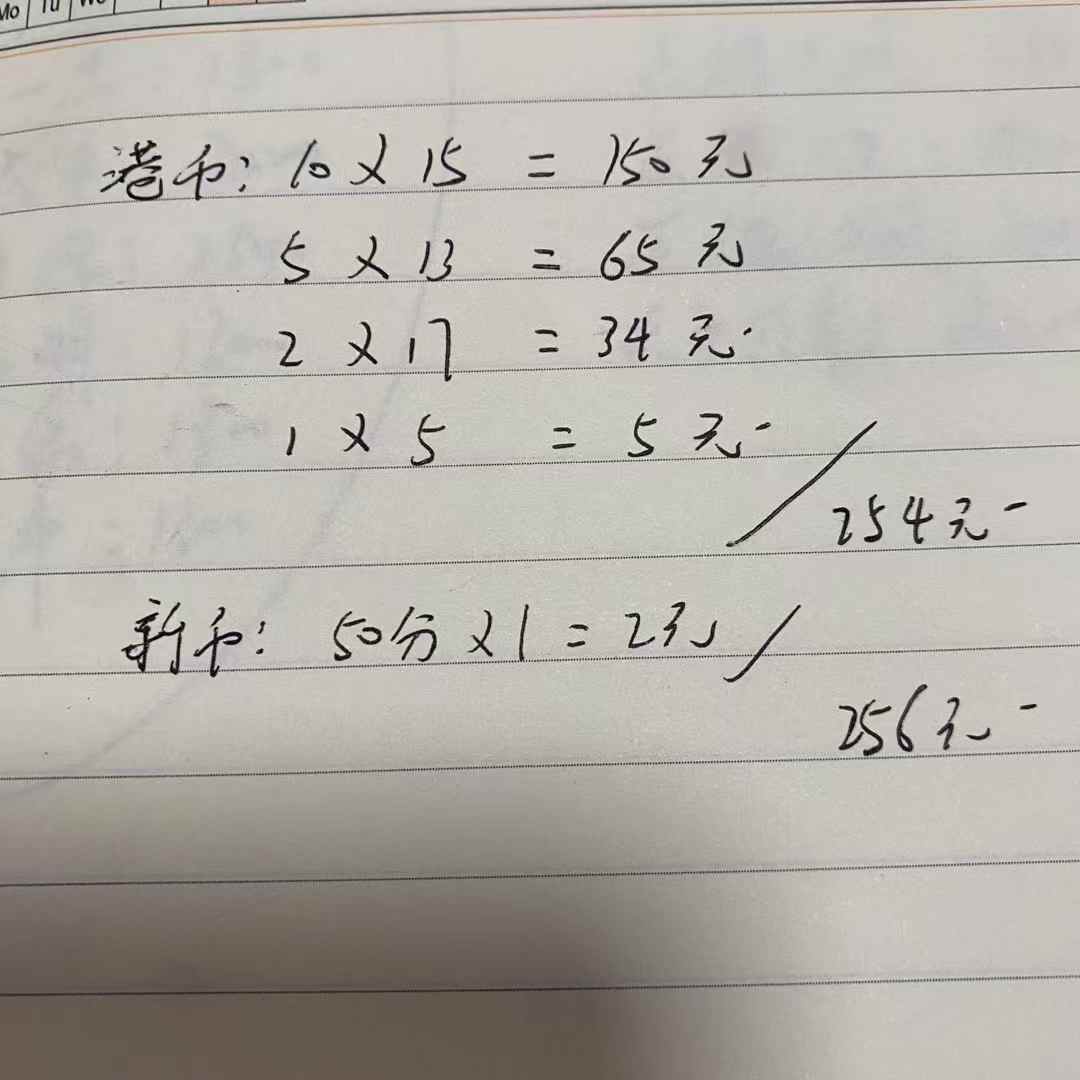 Mo Tu We
港币: 10 × 15 = 150元
5 × 13 = 65元
2 × 17 = 34元.
1 × 5 = 5元-
254元-
新币: 50分 × 1 = 2元
256元-